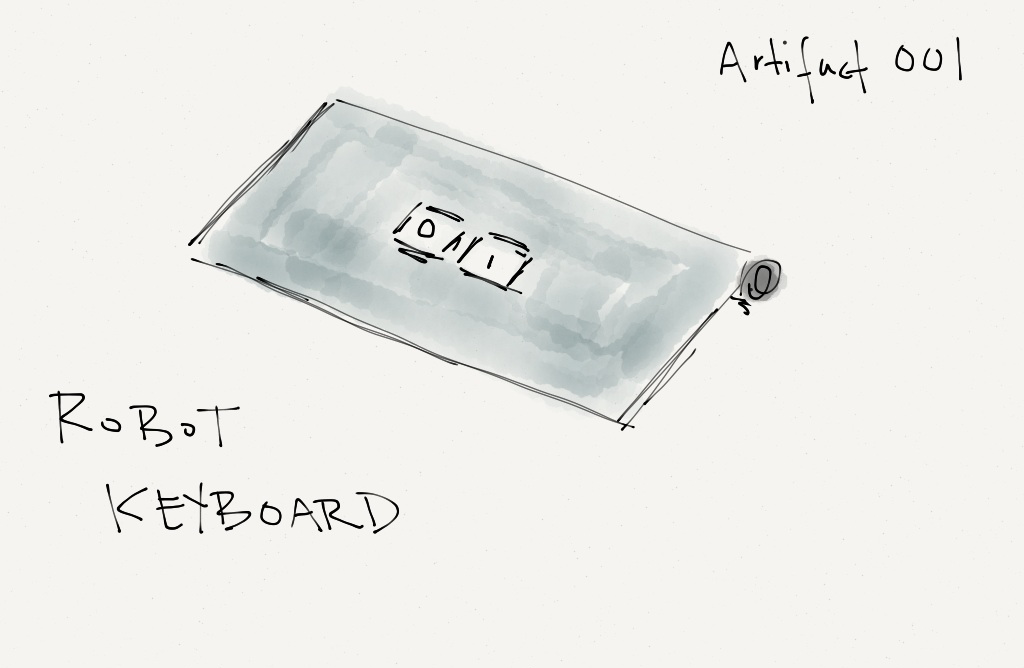 Artifact 001
0 1
ROBOT
KEYBOARD